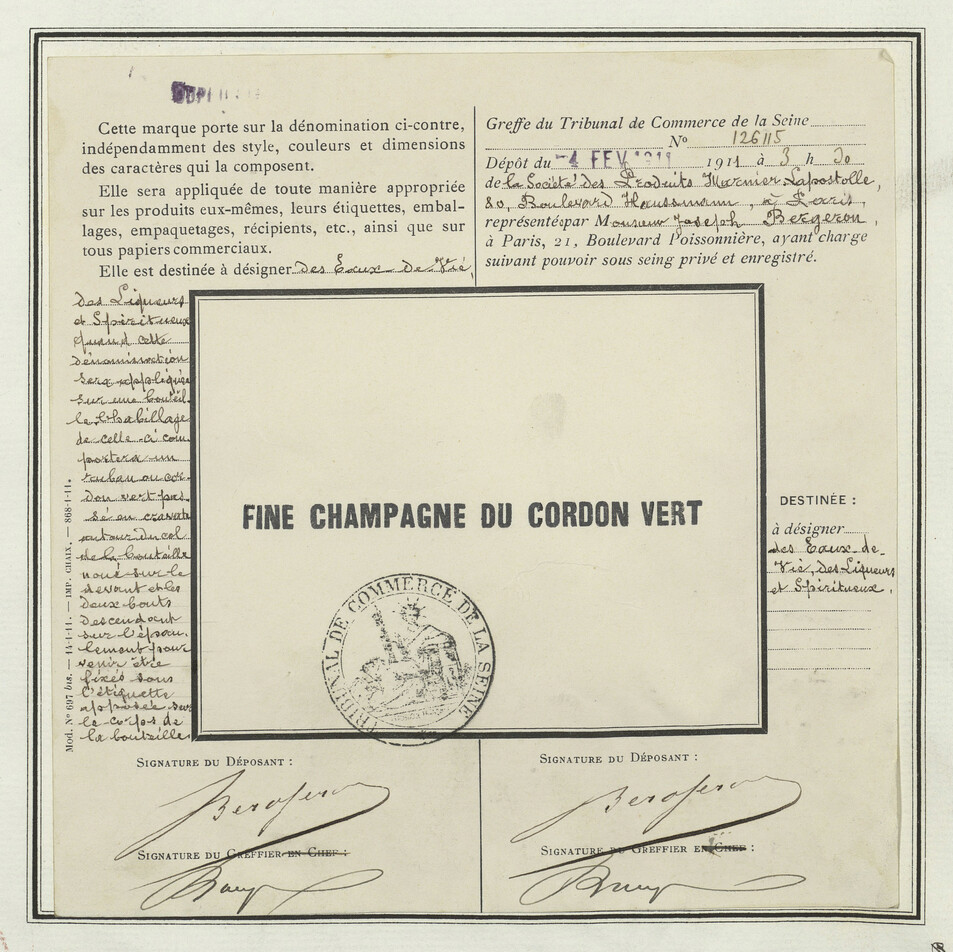 Cette marque porte sur la dénomination ci-contre,
indépendamment des style, couleurs et dimensions
des caractères qui la composent.
Elle sera appliquée de toute manière appropriée
sur les produits eux-mêmes, leurs étiquettes, embal-
lages, empaquetages, récipients, etc., ainsi que sur
tous papiers commerciaux.
Elle est destinée à désigner des Eaux-de-Vie,
des Liqueurs
et Spiritueux
Quand cette
dénomination
sera appliquée
sur une bouteil
le l'habillage
de celle-ci com
portera un
ruban ou cor-
don vert pas-
sé en cravate
autour du col
de la bouteille
noué sur le
devant et les
deux bouts
descendant
sur l'épau-
lement pour
venir être
fixés sous
l'étiquette
apposée sur
le corps de
la bouteille
Mod. N° 697 bis. — 14-1-11. — IMP. CHAIX. — 868-1-11.
Greffe du Tribunal de Commerce de la Seine
N° 126115
Dépôt du -4 FEV 1911 1911 à 3 h 30
de la Société des Produits Marnier Lapostolle,
80, Boulevard Haussmann, à Paris,
représenté par Monsieur Joseph Bergeron,
à Paris, 21, Boulevard Poissonnière, ayant charge
suivant pouvoir sous seing privé et enregistré.
FINE CHAMPAGNE DU CORDON VERT
TRIBUNAL DE COMMERCE DE LA SEINE
DESTINÉE :
à désigner
des Eaux-de-
Vie, des Liqueurs
et Spiritueux.
SIGNATURE DU DÉPOSANT :
Bergeron
SIGNATURE DU GREFFIER EN CHEF :
SIGNATURE DU DÉPOSANT :
Bergeron
SIGNATURE DU GREFFIER EN CHEF :